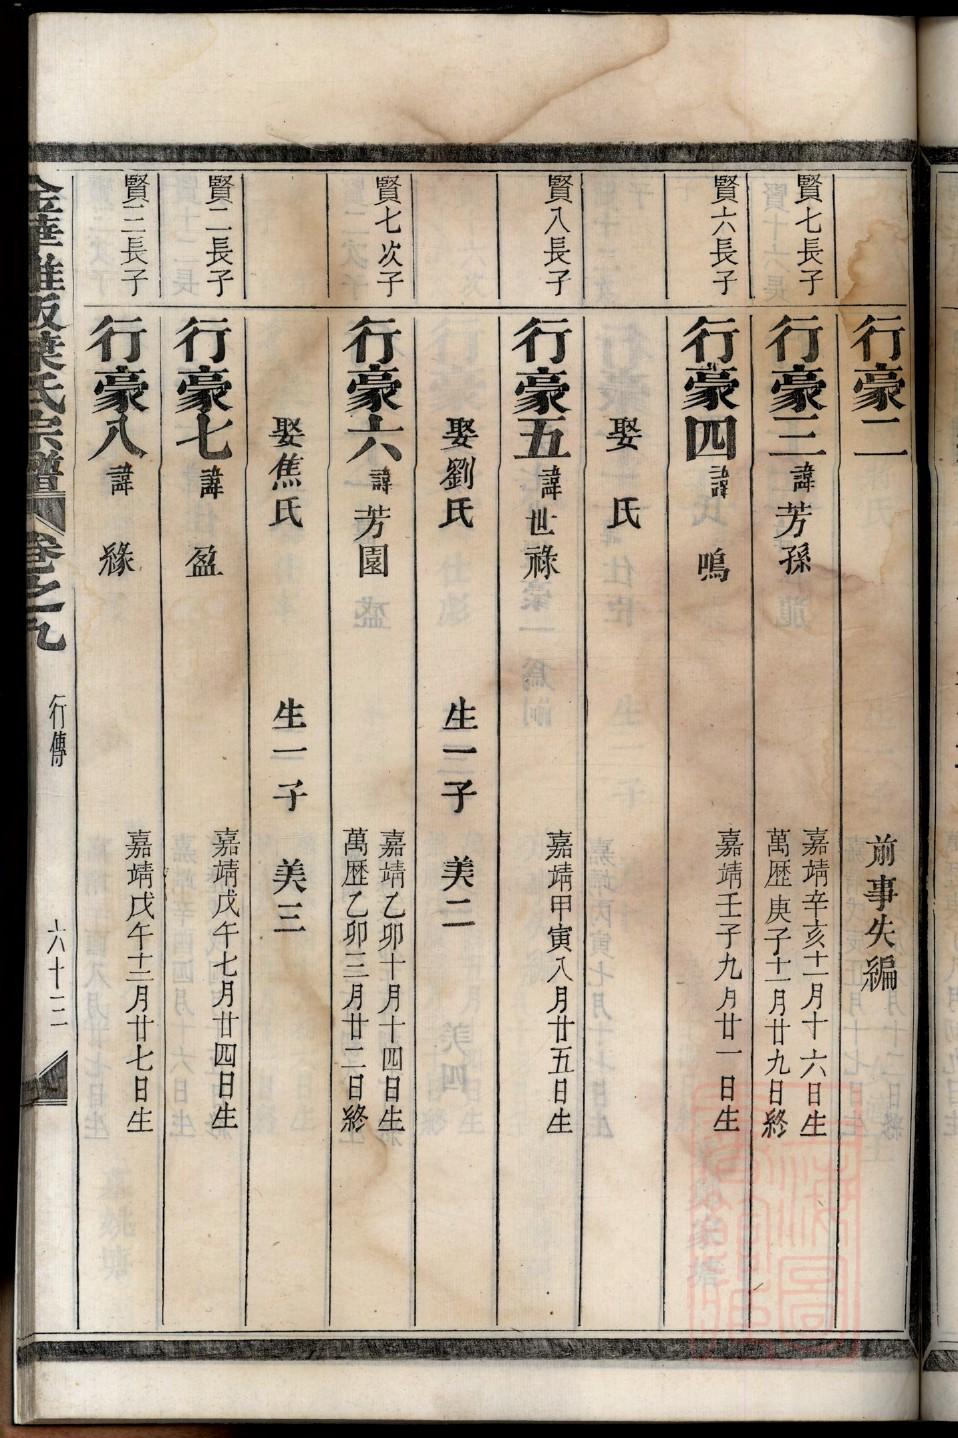 行豪二
前事失編
賢七長子
行豪三 諱芳孫
嘉靖辛亥十一月十六日生
萬歷庚子十一月廿九日終
賢六長子
行豪四 諱鳴
嘉靖壬子九月廿一日生
娶 氏
賢八長子
行豪五 諱世祿
嘉靖甲寅八月廿五日生
娶劉氏 生一子 美二
賢七次子
行豪六 諱芳園
嘉靖乙卯十月十四日生
萬歷乙卯三月廿二日終
娶焦氏 生一子 美三
賢二長子
行豪七 諱盈
嘉靖戊午七月廿四日生
賢三長子
行豪八 諱緣
嘉靖戊午十二月廿七日生
葉氏宗譜 卷之九 行傳 六十三